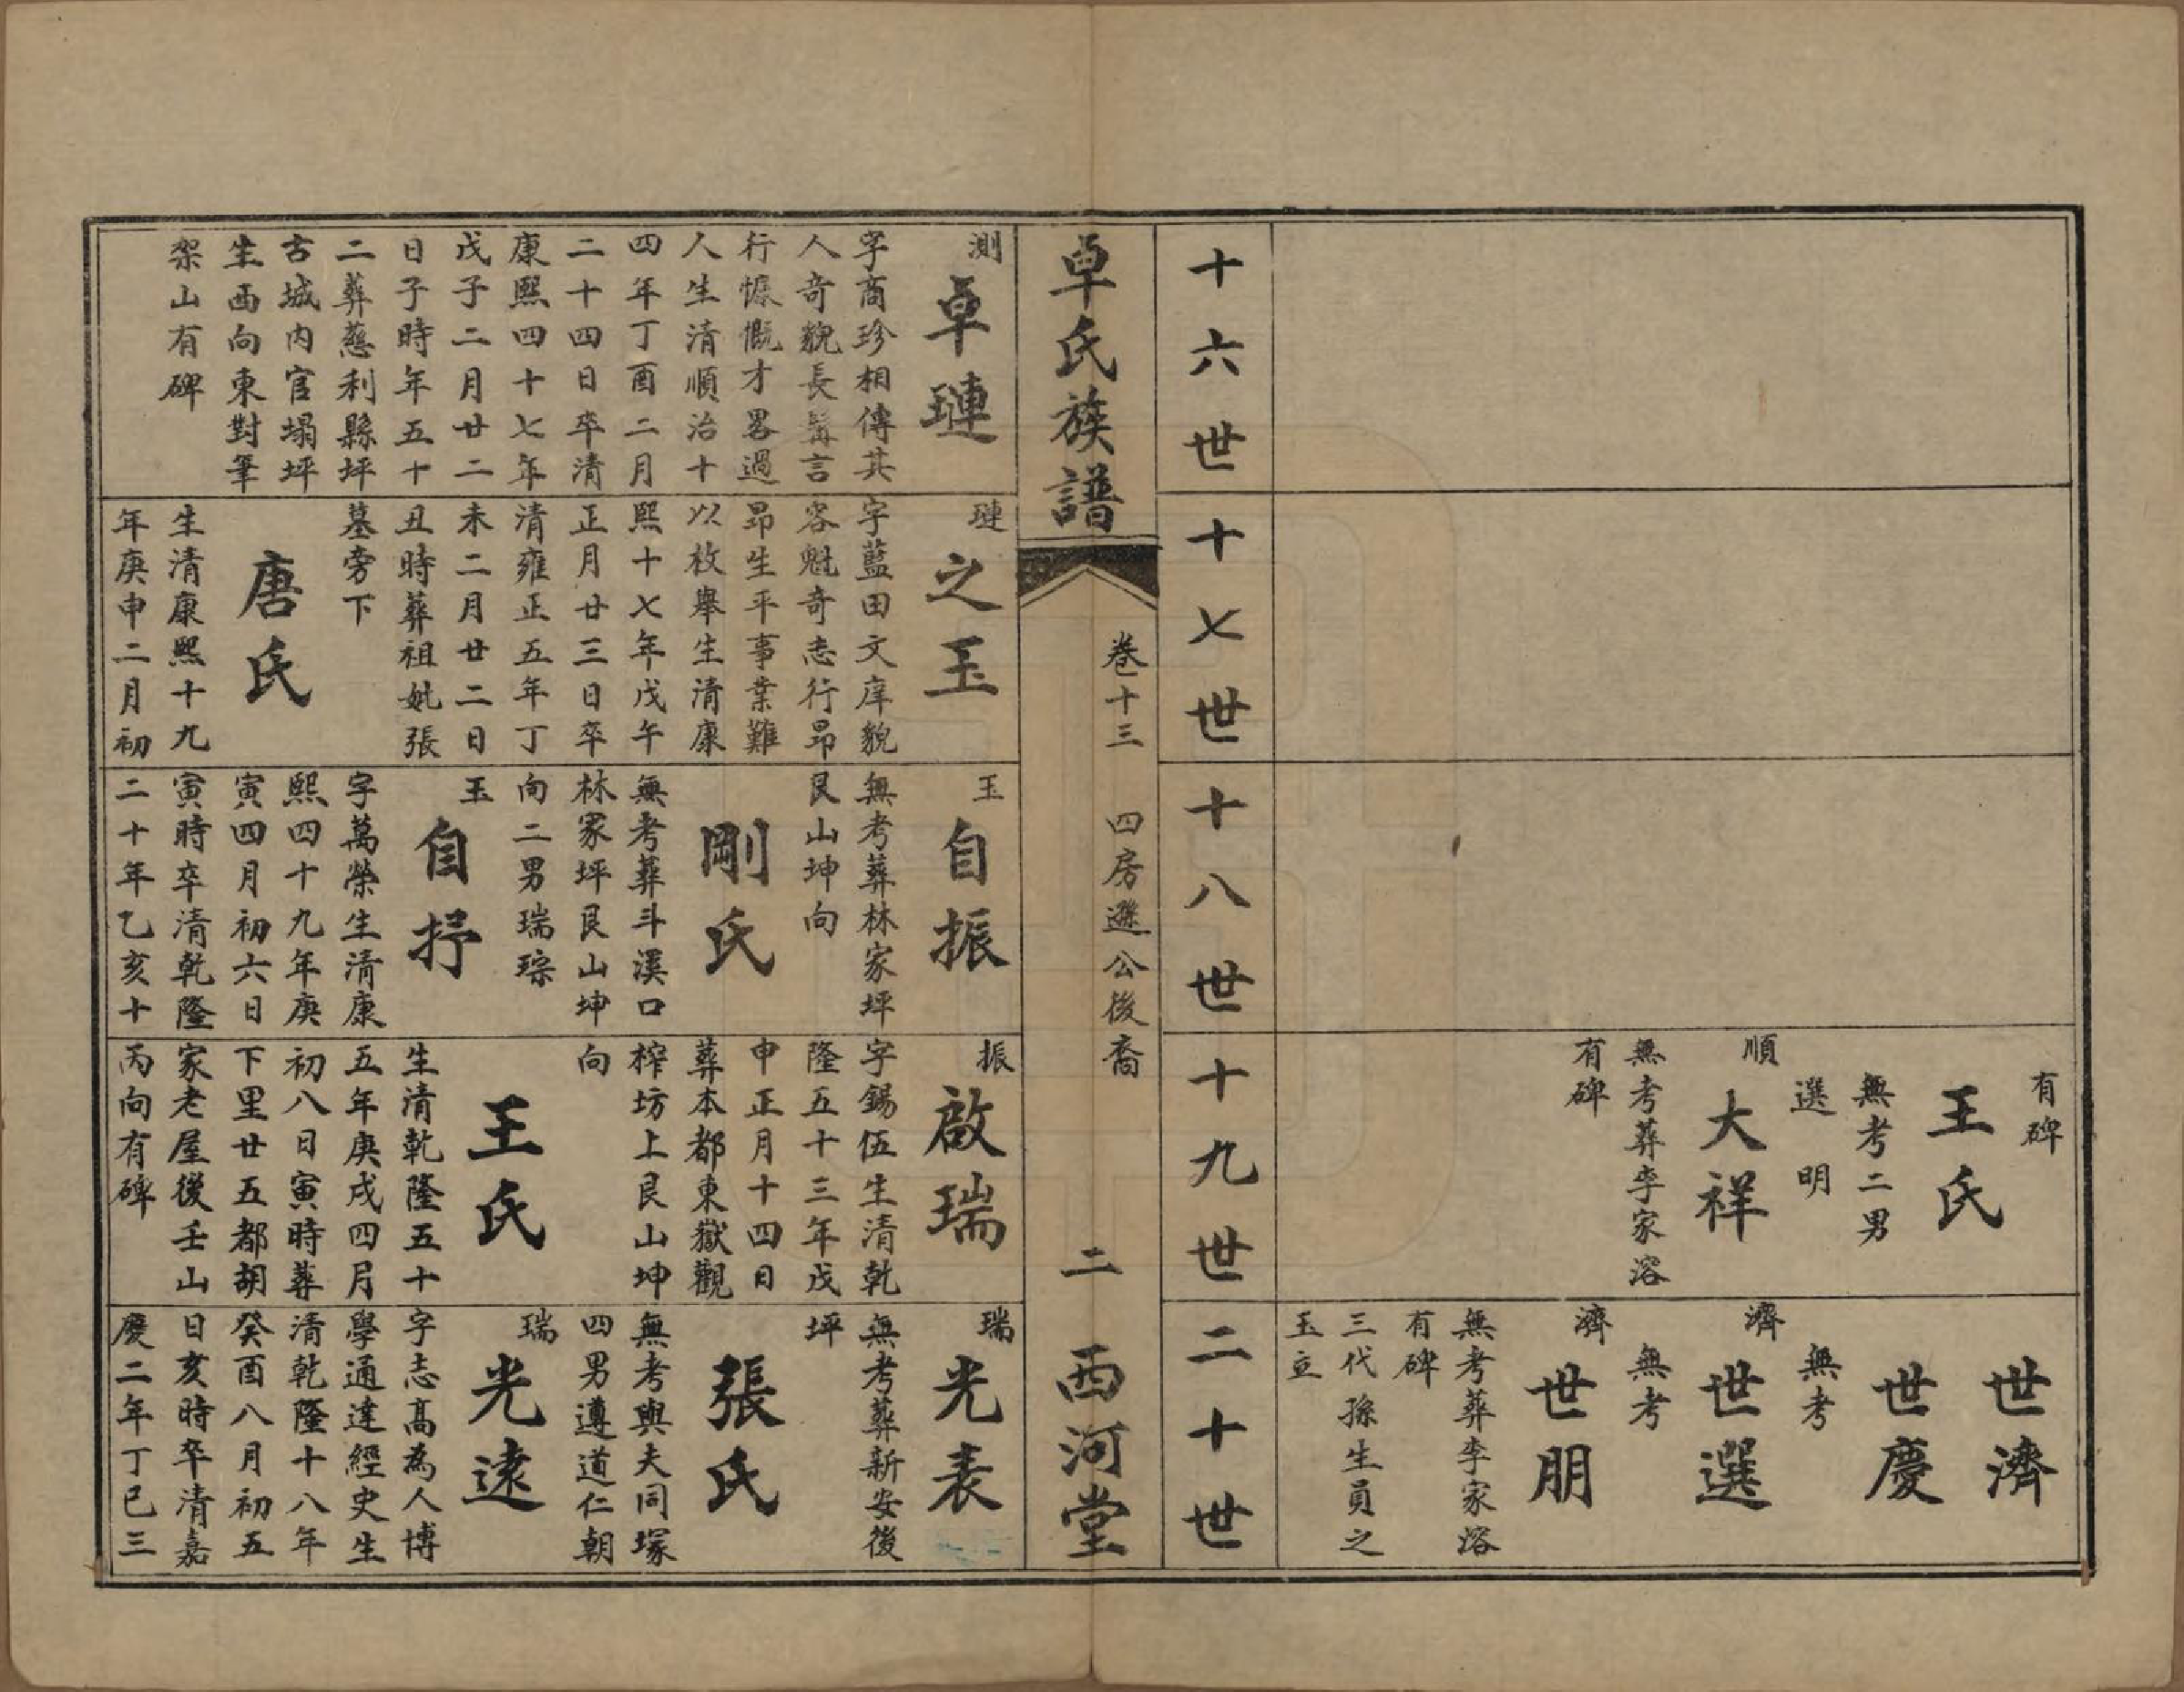 有碑
王氏
無考二男
選明
順
大祥
無考葬李家溶
有碑
世濟
世慶
無考
濟
世選
無考
濟
世朋
無考葬李家溶
有碑
三代孫生員之
玉立
十六世
十七世
十八世
十九世
二十世
卓氏族譜
卷十三
四房遜公後裔
二
西河堂
測
卓璉
字商珍相傳其
人奇貌長髯言
行慷慨才畧過
人生清順治十
四年丁酉二月
二十四日卒清
康熙四十七年
戊子二月廿二
日子時年五十
二葬慈利縣坪
古城內官塌坪
生西向東對筆
架山有碑
璉
之玉
字藍田文庠貌
容魁奇志行昂
昂生平事業難
以枚舉生清康
熙十七年戊午
正月廿三日卒
清雍正五年丁
未二月廿二日
丑時葬祖妣張
墓旁下
唐氏
生清康熙十九
年庚申二月初
玉
自振
無考葬林家坪
艮山坤向
剛氏
無考葬斗溪口
林家坪艮山坤
向二男瑞琮
玉
自抒
字萬榮生清康
熙四十九年庚
寅四月初六日
寅時卒清乾隆
二十年乙亥十
振
啟瑞
字錫伍生清乾
隆五十三年戊
申正月十四日
葬本都東嶽觀
榨坊上艮山坤
向
王氏
生清乾隆五十
五年庚戌四月
初八日寅時葬
下里廿五都胡
家老屋後壬山
丙向有碑
瑞
光表
無考葬新安後
坪
張氏
無考與夫同塚
四男遵道仁朝
瑞
光逮
字志高為人博
學通達經史生
清乾隆十八年
癸酉八月初五
日亥時卒清嘉
慶二年丁巳三